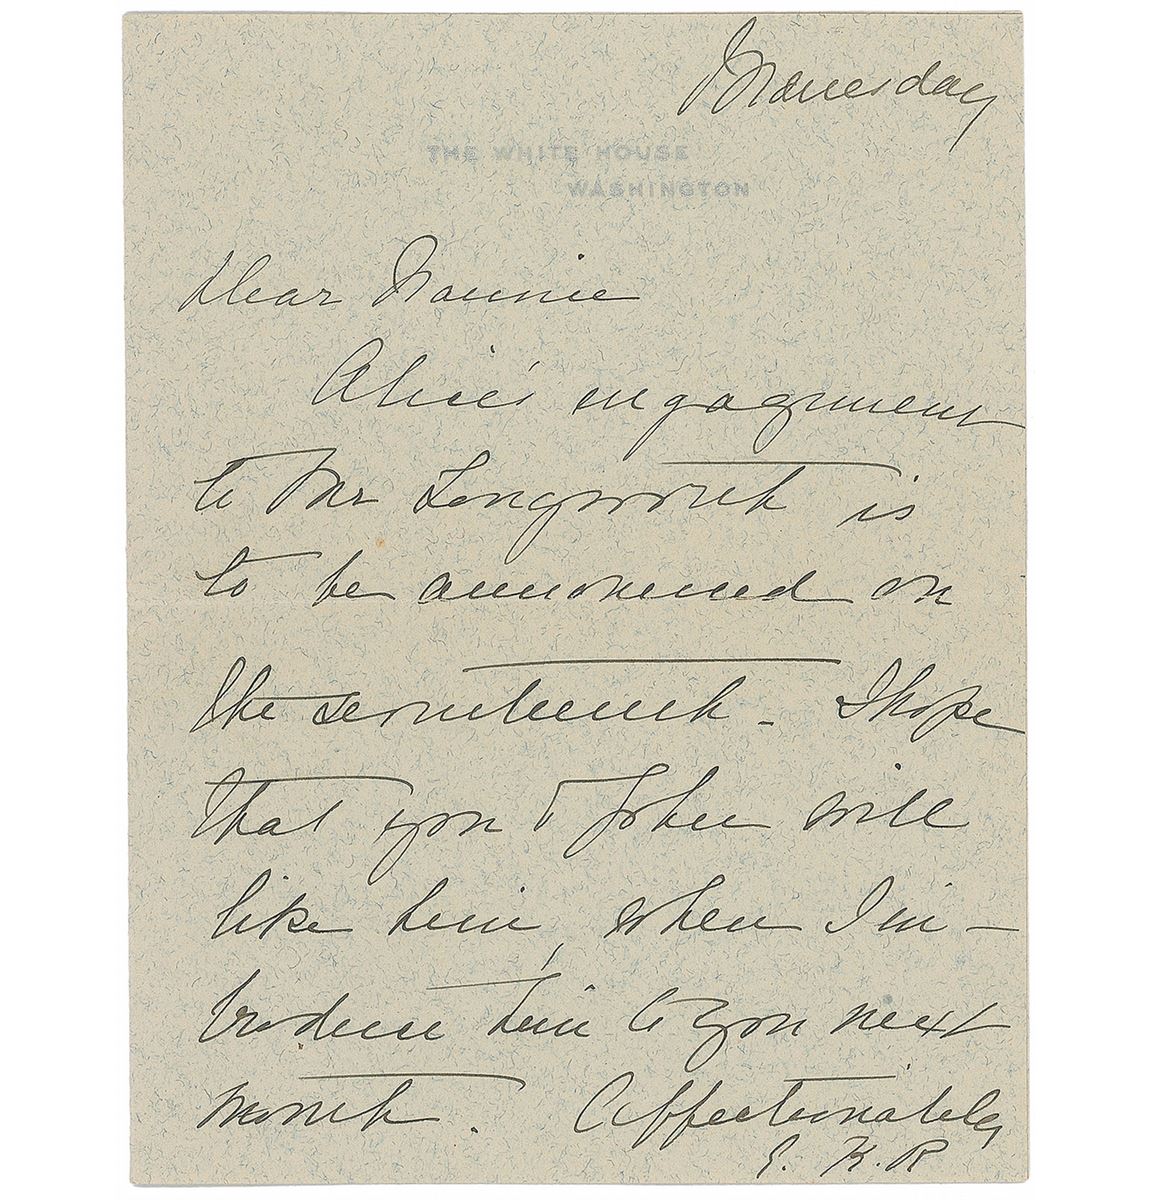 Wednesday
THE WHITE HOUSE
WASHINGTON
Dear Nannie
Alice's engagement
to Mr Longworth is
to be announced on
the seventeenth - I hope
that you & John will
like him, when I in-
troduce him to you next
month. Affectionately
E. K. R